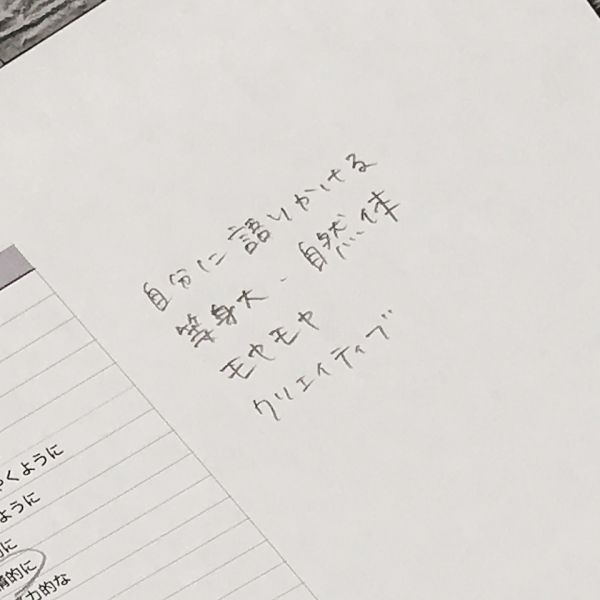 自分に語りかける
等身大・自然体
モヤモヤ
クリエイティブ
くように
ように
に
的に
力的な